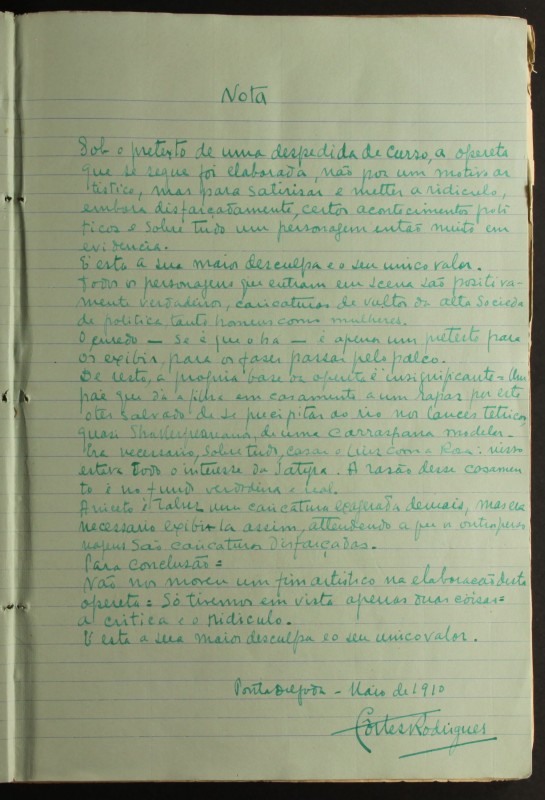 Nota
Sob o pretexto de uma despedida de curso, a opereta
que se segue foi elaborada, não por um motivo ar
tistico, mas para satirisar e metter a ridiculo,
embora disfarçadamente, certos acontecimentos poli
ticos e sobre tudo um personagem então muito em
evidencia.
E esta a sua maior desculpa e o seu unico valor.
Todos os personagens que entram em scena são positiva-
mente verdadeiros, caricaturas de vultos da alta Socieda
de politica, tanto homens como mulheres.
O enredo — Se é que o ha — é apenas um pretexto para
os exibir, para os fazer passar pelo palco.
De resto, a propria base da opereta é insignificante = Um
pae que dá a filha em casamento a um rapaz por este
o ter salvado de se precipitar ao rio nos lances tetricos,
quasi Shakespeareanos, de uma carraspana modelar.
Era necessario, sobre tudo, casar o Luiz com a Rosa: nisso
estava todo o interesse da Satyra. A razão desse casamen
to é no fundo verdadeira e real.
é talvez uma caricatura exagerada demais, mas era
necessario exibi-la assim, attendendo a que os outros perso
nagens são caricaturas disfarçadas.
Para conclusão =
Não nos moveu um fim artistico na elaboração desta
opereta = Só tivemos em vista apenas duas coisas =
a critica e o ridiculo.
E esta a sua maior desculpa e o seu unico valor.
Ponta Delgada — Maio de 1910
Côrtes Rodrigues